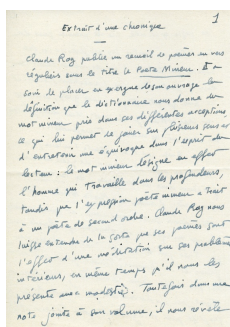 1
Extrait d'une chronique
Claude Roy publie un recueil de poèmes en vers
réguliers sous le titre le Poète Mineur. Il a
soin de placer en exergue de son ouvrage la
définition que le dictionnaire nous donne du
mot mineur pris dans ses différentes acceptions
ce qui lui permet de jouer sur plusieurs sens et
d'entretenir une équivoque dans l'esprit du
lecteur : le mot mineur désigne en effet
l'homme qui travaille dans les profondeurs,
tandis que l'expression poète mineur a trait
à un poète de second ordre. Claude Roy nous
laisse entendre de la sorte que ses poèmes sont
l'effet d'une méditation sur ses problèmes
intérieurs, en même temps qu'il nous les
présente avec modestie. Toutefois dans une
note jointe à son volume, il nous révèle